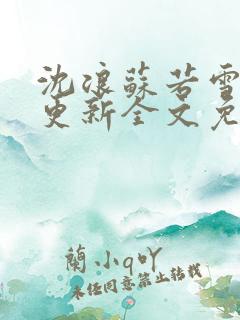 沈浪蘇若雪
更新全文免
蘭小q吖
未经同意禁止转载